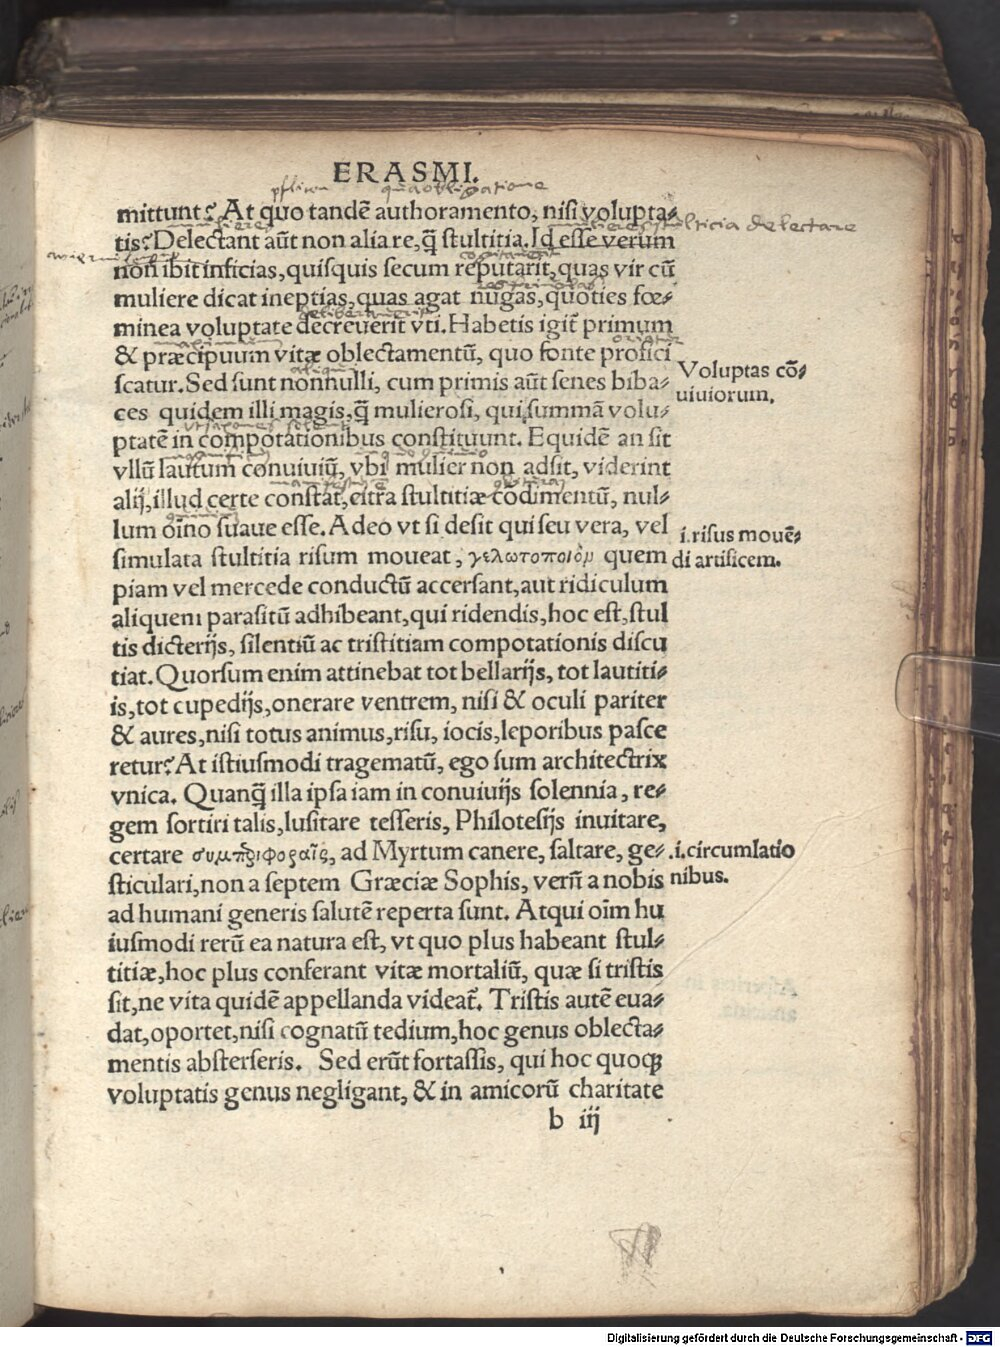 ERASMI.
mittunt? At quo tandē authoramento, nisi volupta⸗
tis? Delectant aūt non alia re, q̄ stultitia. Id esse verum
non ibit inficias, quisquis secum reputarit, quas vir cū
muliere dicat ineptias, quas agat nugas, quoties fœ⸗
minea voluptate decreuerit vti. Habetis igit̃ primum
& præcipuum vitæ oblectamentū, quo fonte profici
scatur. Sed sunt nonnulli, cum primis aūt senes biba⸗
ces quidem illi magis, q̄ mulierosi, qui summā volu⸗
ptatē in compotationibus constituunt. Equidē an sit
vllū lautum conuiuiū, vbi mulier non adsit, viderint
alij, illud certe constat, citra stultitiæ cōdimentū, nul⸗
lum oīno suaue esse. Adeo vt si desit qui seu vera, vel
simulata stultitia risum moueat, γελωτοποιὸμ quem
piam vel mercede conductū accersant, aut ridiculum
aliquem parasitū adhibeant, qui ridendis, hoc est, stul
tis dicterijs, silentiū ac tristitiam compotationis discu
tiat. Quorsum enim attinebat tot bellarijs, tot lautiti⸗
is, tot cupedijs, onerare ventrem, nisi & oculi pariter
& aures, nisi totus animus, risu, iocis, leporibus pasce
retur? At istiusmodi tragematū, ego sum architectrix
vnica. Quanq̄ illa ipsa iam in conuiuijs solennia, re⸗
gem sortiri talis, lusitare tesseris, Philotesijs inuitare,
certare συμπεριφοραῖς, ad Myrtum canere, saltare, ge⸗
sticulari, non a septem Græciæ Sophis, verū a nobis
ad humani generis salutē reperta sunt. Atqui oīm hu
iusmodi rerū ea natura est, vt quo plus habeant stul⸗
titiæ, hoc plus conferant vitæ mortaliū, quæ si tristis
sit, ne vita quidē appellanda videat̃. Tristis autē eua⸗
dat, oportet, nisi cognatū tedium, hoc genus oblecta⸗
mentis absterseris. Sed erūt fortassis, qui hoc quoqꝫ
voluptatis genus negligant, & in amicorū charitate
b iij
Voluptas cō⸗
uiuiorum.
i. risus mouē⸗
di artificem.
.i. circumlatio
nibus.
qua obligatione
stulticia delectare
Digitalisierung gefördert durch die Deutsche Forschungsgemeinschaft - DFG